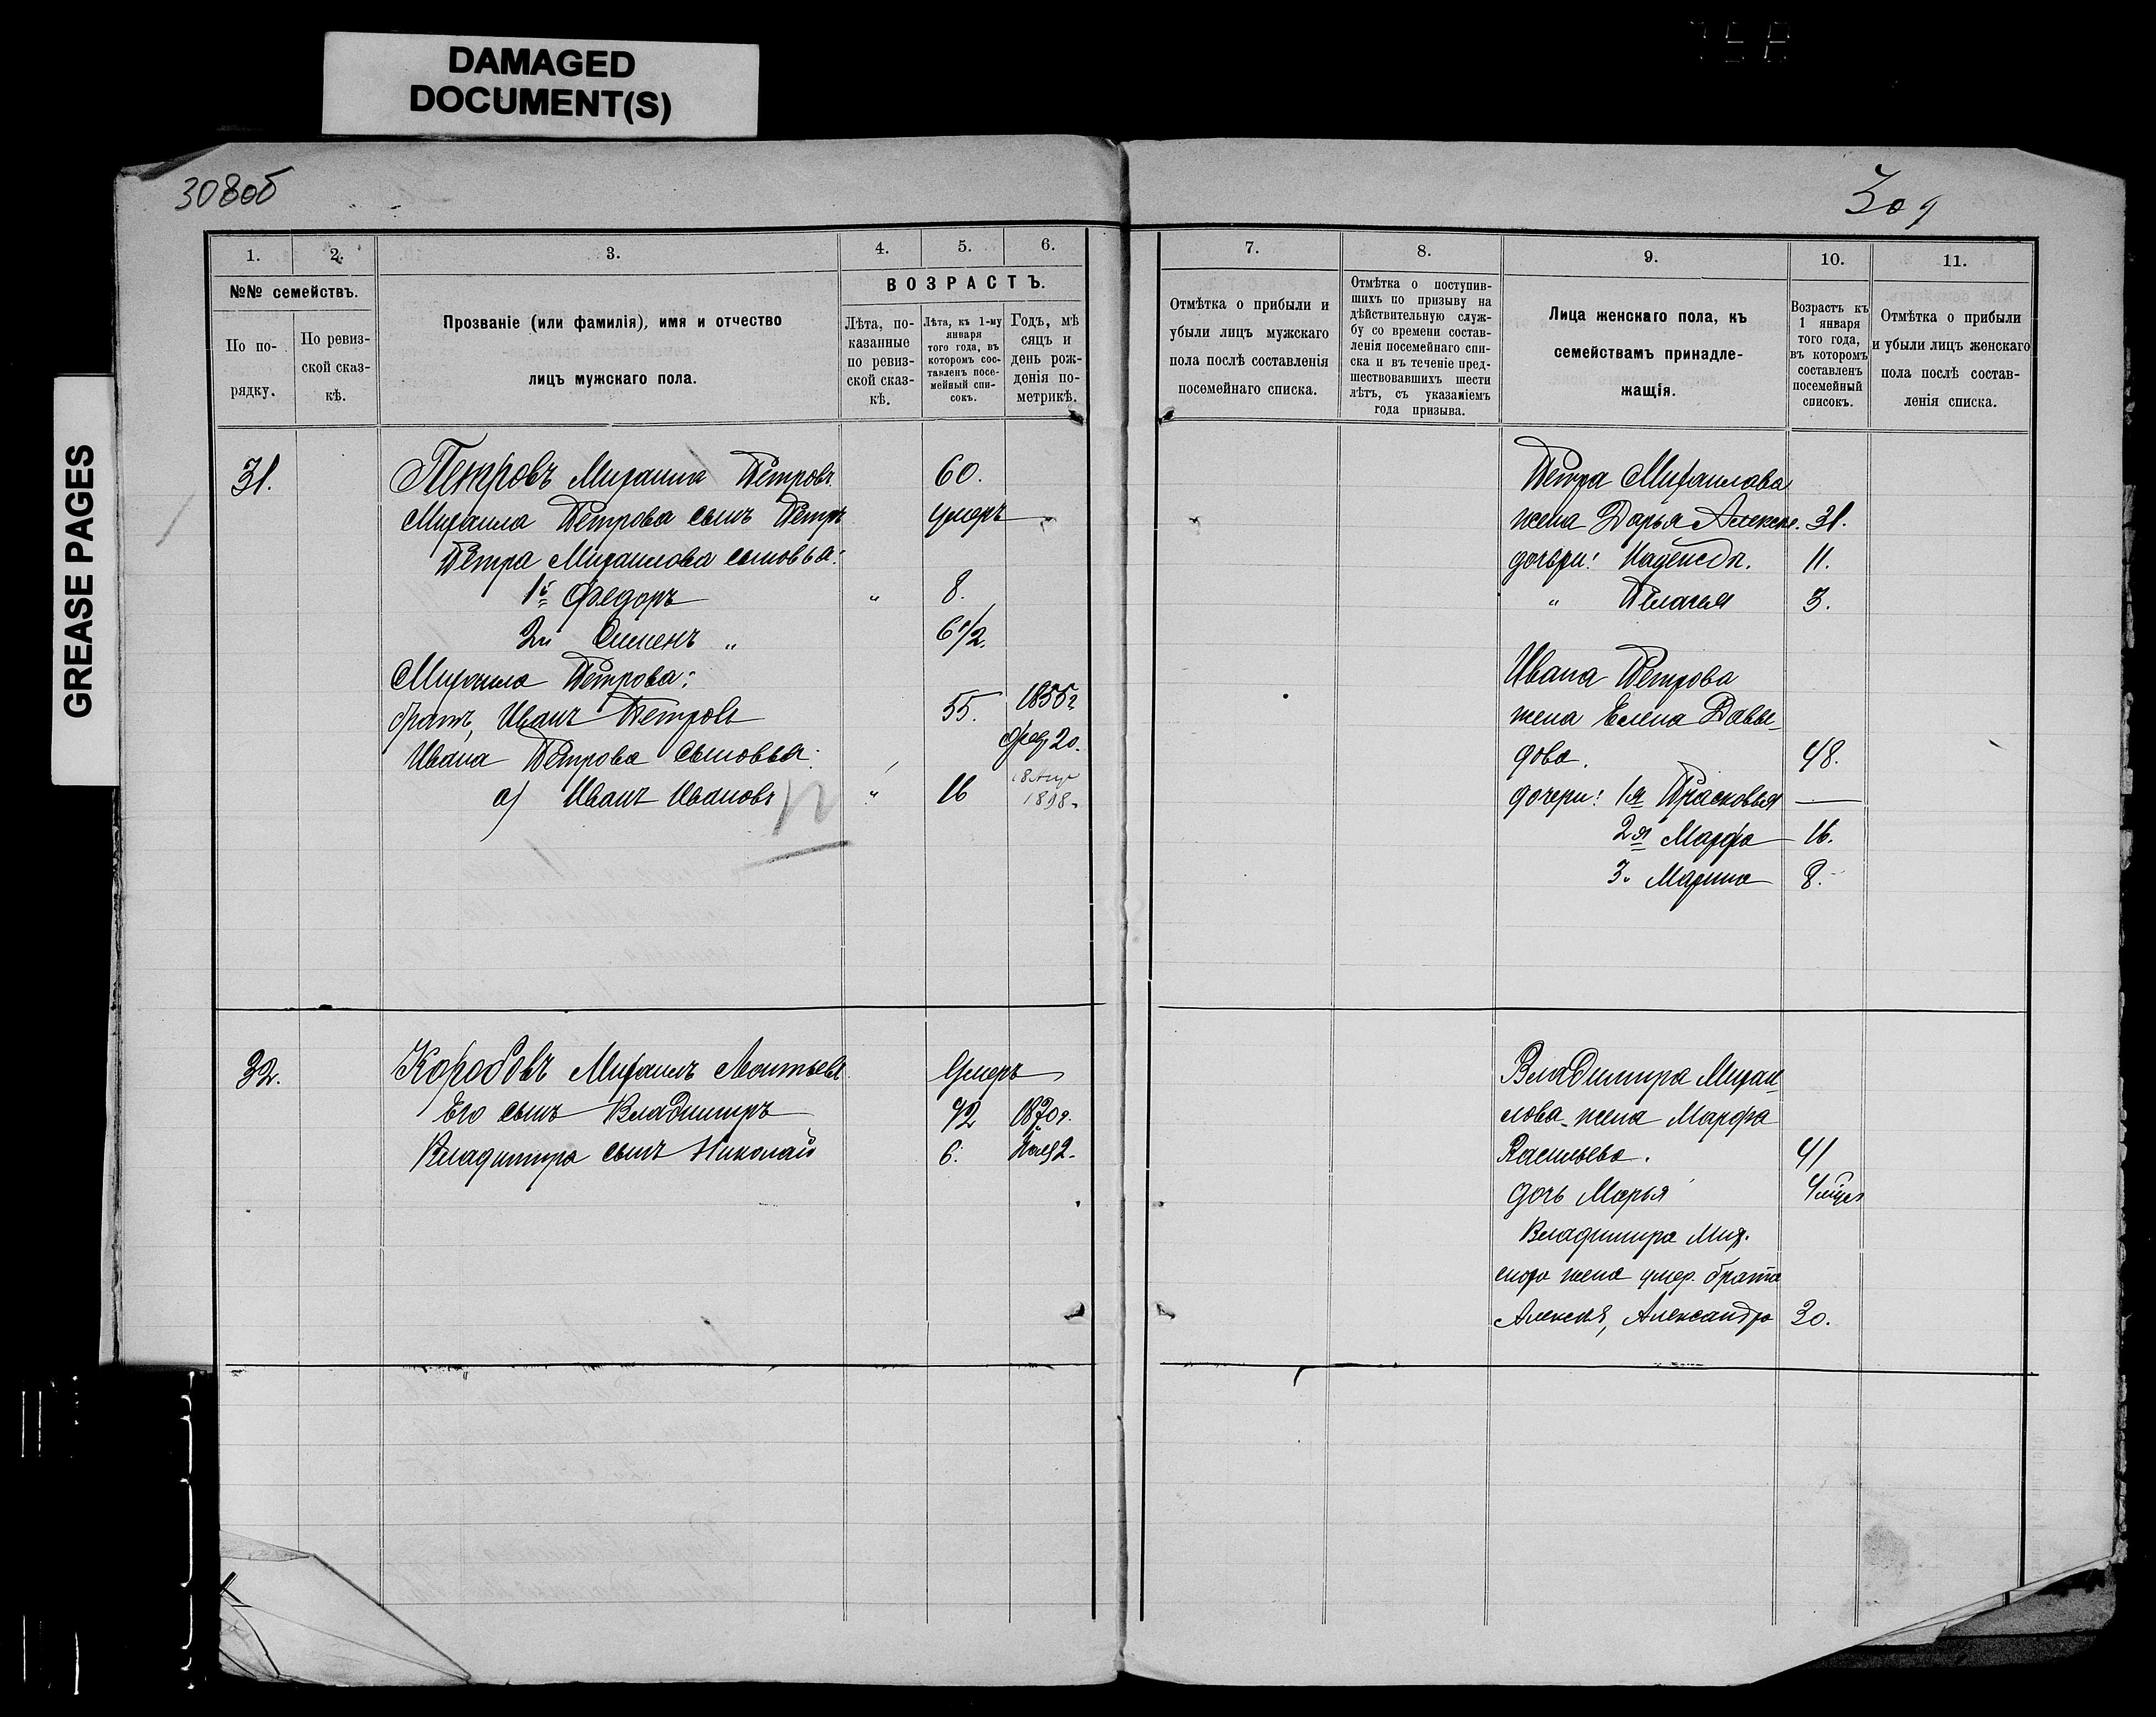 DAMAGED
DOCUMENT(S)
GREASE PAGES
308об
309
1.
2.
3.
4.
5.
6.
№№ семействъ.
По по-
рядку.
По ревиз-
ской сказ-
кѣ.
Прозваніе (или фамилія), имя и отчество
лицъ мужскаго пола.
ВОЗРАСТЪ.
Лѣта, по-
казанные
по ревиз-
ской сказ-
кѣ.
Лѣта, къ 1-му
января
того года, въ
которомъ сос-
тавленъ посе-
мейный спи-
сокъ.
Годъ, мѣ
сяцъ и
день рож-
денія по-
метрикѣ.
31.
Петровъ Михаила Петровъ
60.
Михаила Петрова сынъ Петръ
умеръ
Петра Михаилова сыновья:
1й Федоръ " 8.
2й Сименъ " 6 1/2.
Михаила Петрова:
братъ, Иванъ Петровъ 55. 1855г
Фев 20.
Ивана Петрова сыновья:
а) Иванъ Ивановъ " 16
18 Авг
1898
32.
Коробовъ Михаилъ Леонтьевъ
Умеръ
Его сынъ Владимиръ 42 1870г.
Владимира сынъ Николай 6.
7.
8.
9.
10.
11.
Отмѣтка о прибыли и
убыли лицъ мужскаго
пола послѣ составленія
посемейнаго списка.
Отмѣтка о поступив-
шихъ по призыву на
дѣйствительную служ-
бу со времени состав-
ленія посемейнаго спи-
ска и въ теченіе пред-
шествовавшихъ шести
лѣтъ, съ указаніемъ
года призыва.
Лица женскаго пола, къ
семействамъ принадле-
жащія.
Возрастъ къ
1 января
того года,
въ которомъ
составленъ
посемейный
списокъ.
Отмѣтка о прибыли
и убыли лицъ женскаго
пола послѣ состав-
ленія списка.
Петра Михаилова
жена Дарья Алексѣе. 31.
дочери: Надежда. 11.
" Пелагья 3.
Ивана Петрова
жена Елена Давы-
дова. 48.
дочери: 1я Прасковья —
2я Марфа 16.
3. Марина 8.
Владимира Михаи-
лова жена Марфа
Васильева. 41
дочь Марья 4 мѣс
Владимира Мих.
жена умер. брата
Алексѣя, Александра 30.